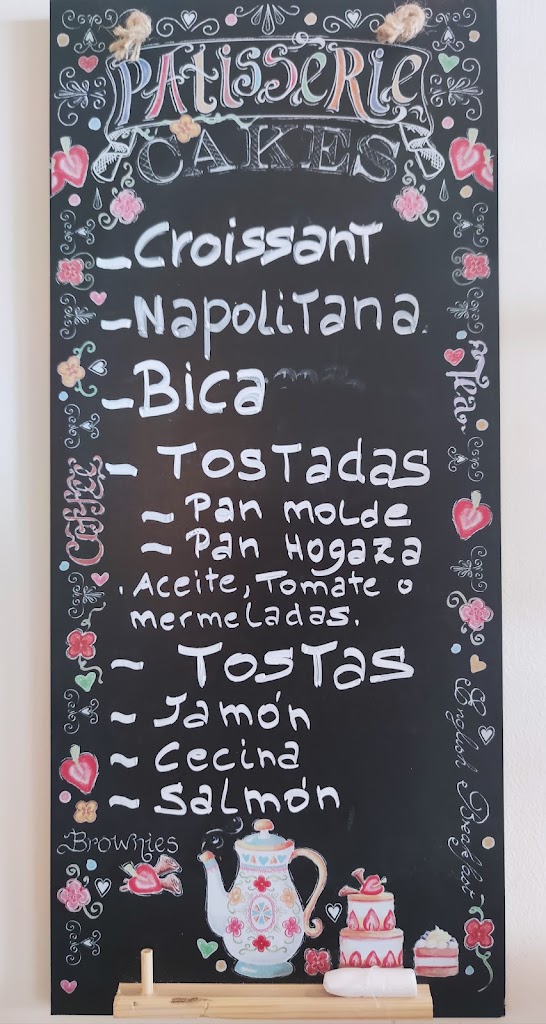 PATISSERIE
CAKES
- Croissant
- Napolitana
- Bica
- Tostadas
- Pan molde
- Pan Hogaza
. Aceite, Tomate o
mermeladas.
- Tostas
~ Jamón
~ Cecina
~ Salmón
Coffee
Tea
English Breakfast
Brownies